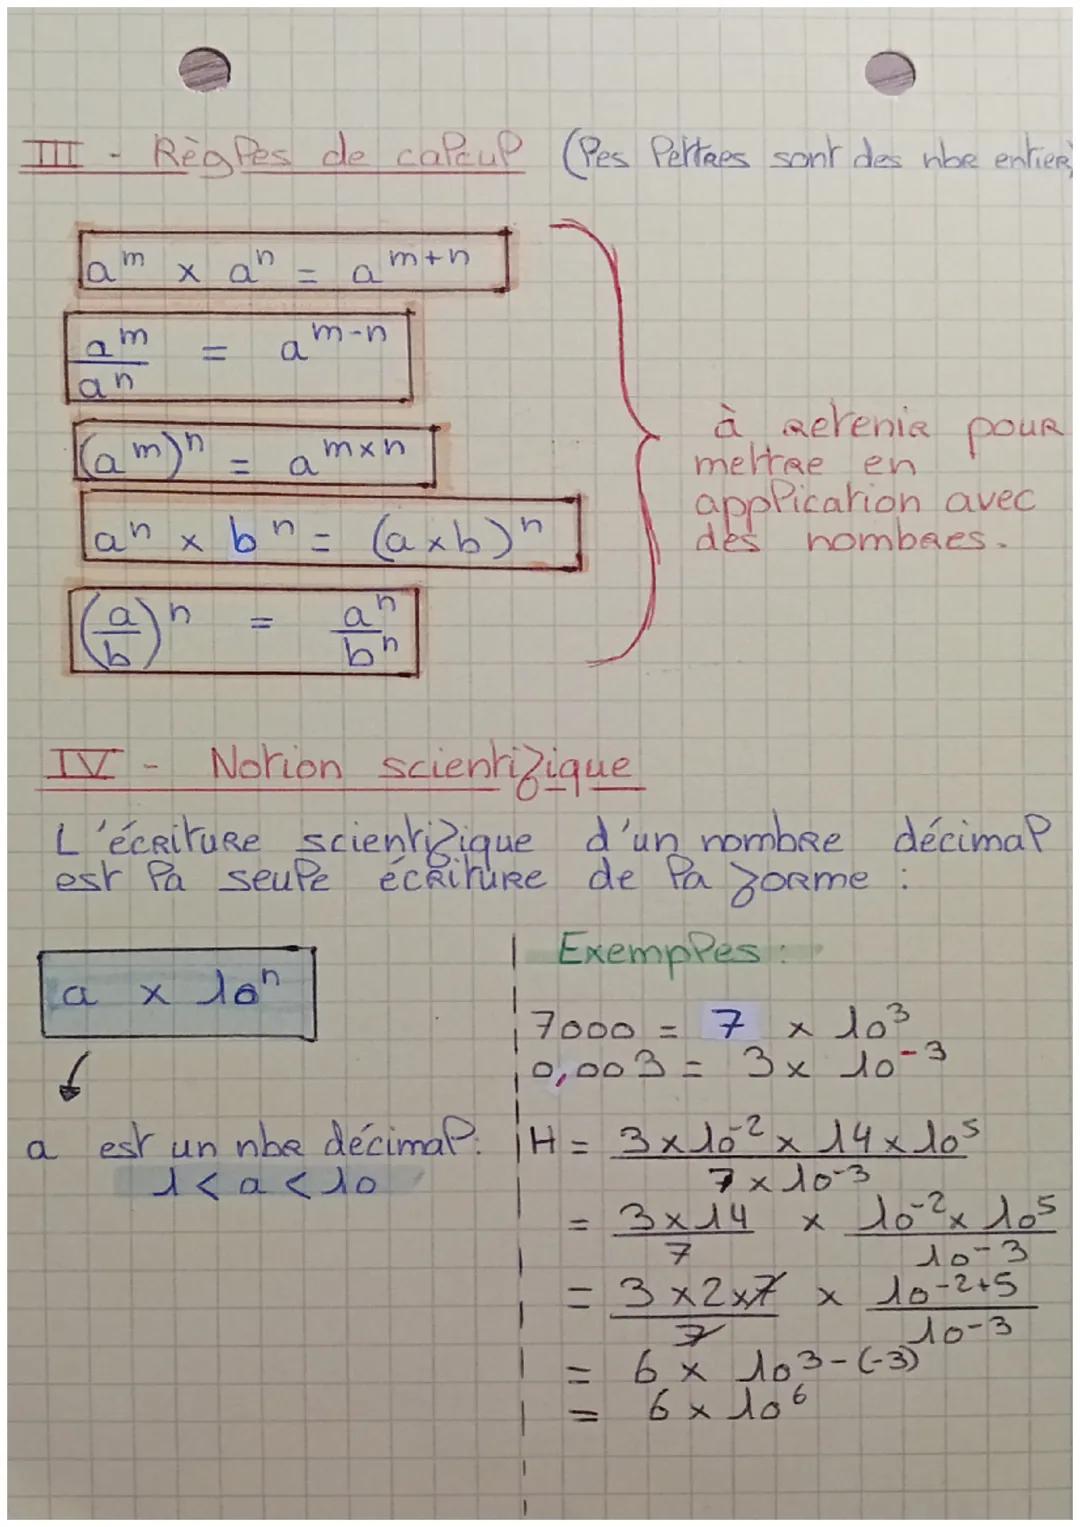 III - Règles de calcul (les lettres sont des nbr entier)
a^m x a^n = a^(m+n)
a^m / a^n = a^(m-n)
(a^m)^n = a^(m×n)
a^n x b^n = (a x b)^n
(a/b)^n = a^n / b^n
à retenir pour
mettre en
application avec
des nombres.
IV - Notion scientifique
L'écriture scientifique d'un nombre décimal
est la seule écriture de la forme :
a x 10^n
a est un nbr décimal.
1 < a < 10
Exemples :
7000 = 7 x 10^3
0,003 = 3 x 10^-3
H = (3 x 10^-2 x 14 x 10^5) / (7 x 10^-3)
= (3 x 14) / 7 x (10^-2 x 10^5) / 10^-3
= (3 x 2 x 7) / 7 x 10^(-2+5) / 10^-3
= 6 x 10^(3-(-3))
= 6 x 10^6